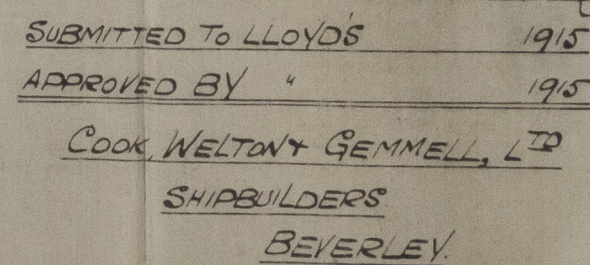 SUBMITTED TO LLOYD'S 1915
APPROVED BY " 1915
COOK, WELTON & GEMMELL, LTD
SHIPBUILDERS
BEVERLEY.